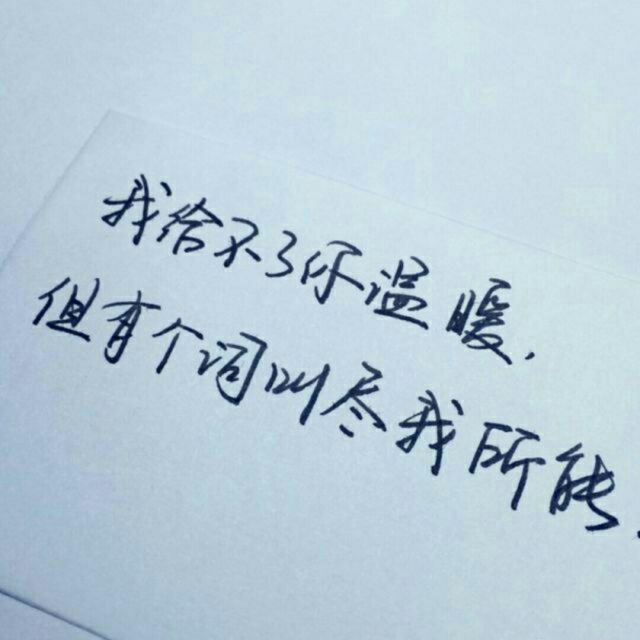 我给不了你温暖.
但有个词叫尽我所能.